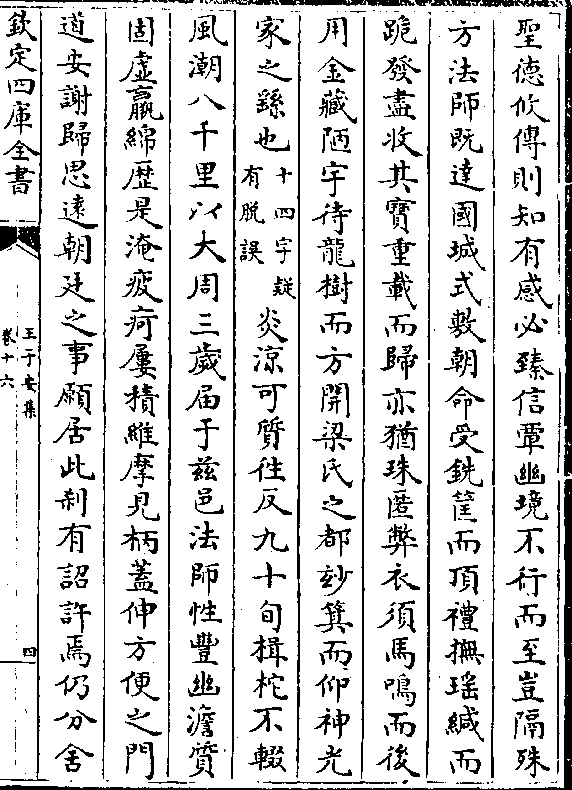 聖德攸傳則知有感必臻信覃幽境不行而至豈隔殊
方法師既達國城式敷朝命受銑筐而頂禮撫瑶緘而
跪發盡收其寶重載而歸亦猶珠匿弊衣須馬鳴而後
用金藏陋宇待龍樹而方開梁氏之都玅箕而仰神光
家之繇也十四字疑有脱誤炎涼可質往反九十旬楫柁不輟
風潮八千里以大周三歲届于兹邑法師性豐幽澹質
固虚羸綿歴是淹疲疴屢積維摩見柄蓋伸方便之門
道安謝歸思遠朝廷之事願居此刹有詔許焉仍分舍
欽定四庫全書
王子安集
卷十六
四